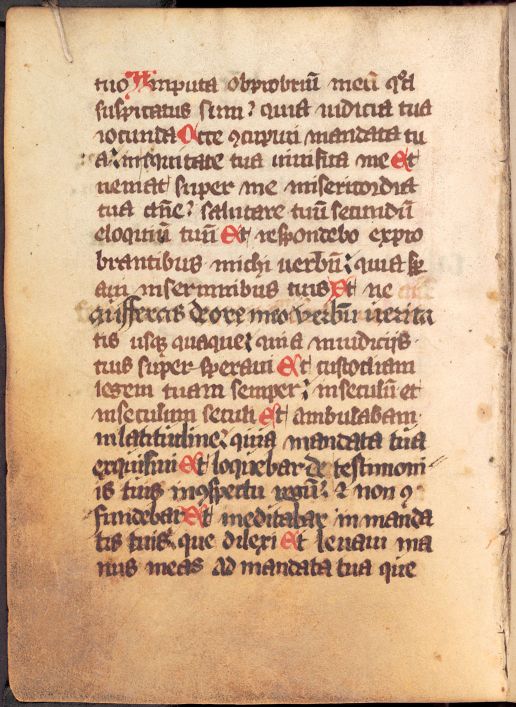 tuo Amputa obprobriū meū qͦd
suspicatus sum: quia iudicia tua
iocunda Ecce ꝯcupiui mandata tu
a: in equitate tua uiuifica me Et
ueniat super me misericordia
tua dn̄e: salutare tuū secundū
eloquiū tuū Et respondebo expro
brantibus michi uerbū: quia sꝑ
aui in sermonibus tuis Et ne
auferas de ore meo verbū uerita
tis usqꝫ quaque: quia in iudicijs
tuis super speraui Et custodiam
legem tuam semper: in seculū et
in seculum seculi Et ambulabam
in latitudine: quia mandata tua
exquisiui Et loquebar de testimoni
is tuis in ꝯspectu regū: ⁊ non ꝯ
fundebar Et meditabar in manda
tis tuis: que dilexi Et leuaui ma
nus meas ad mandata tua que